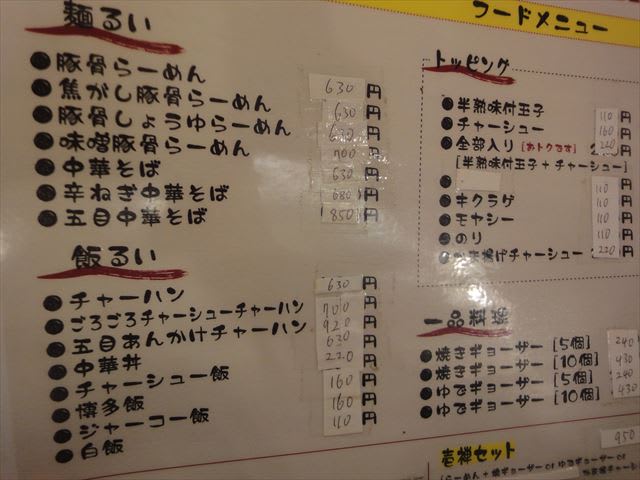 フードメニュー
麺るい
豚骨らーめん 630円
焦がし豚骨らーめん 630円
豚骨しょうゆらーめん 円
味噌豚骨らーめん 700円
中華そば 630円
辛ねぎ中華そば 680円
五目中華そば 850円
飯るい
チャーハン 630円
ごろごろチャーシューチャーハン 700円
五目あんかけチャーハン 920円
中華丼 630円
チャーシュー飯 220円
博多飯 160円
ジャーコー飯 160円
白飯 110円
トッピング
半熟味付玉子 110円
チャーシュー 160円
全部入り [おトクです] 220円
[半熟味付玉子+チャーシュー]
110円
キクラゲ 110円
モヤシー 110円
のり 110円
揚げチャーシュー 220円
一品料理
焼きギョーザー [5個] 240
焼きギョーザー [10個] 430
ゆでギョーザー [5個] 240
ゆでギョーザー [10個] 430
壱禅セット
950